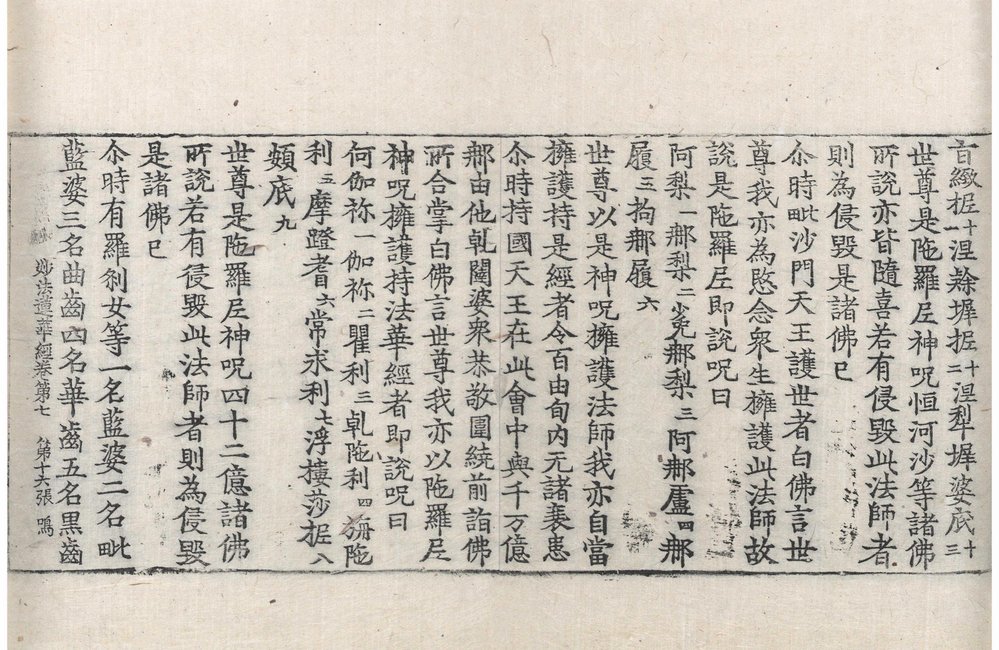 旨緻抳十一涅隸墀抳十二涅犁墀婆底十三
世尊是陁羅尼神呪恒河沙等諸佛
所說亦皆隨喜若有侵毀此法師者
則為侵毀是諸佛已
尒時毗沙門天王護世者白佛言世
尊我亦為愍念眾生擁護此法師故
說是陁羅尼即說呪曰
阿梨一那梨二㝹那梨三阿那盧四那
履五拘那履六
世尊以是神呪擁護法師我亦自當
擁護持是經者令百由旬內无諸衰患
尒時持國天王在此會中與千万億
那由他乹闥婆眾恭敬圍繞前詣佛
所合掌白佛言世尊我亦以陁羅尼
神呪擁護持法華經者即說呪曰
何伽祢一伽祢二瞿利三乹陁利四旃陁
利五摩蹬耆六常求利七浮樓莎抳八
頞底九
世尊是陁羅尼神呪四十二億諸佛
所說若有侵毀此法師者則為侵毀
是諸佛已
尒時有羅剎女等一名藍婆二名毗
藍婆三名曲齒四名華齒五名黑齒
妙法蓮華經卷第七 第十六張 鳴